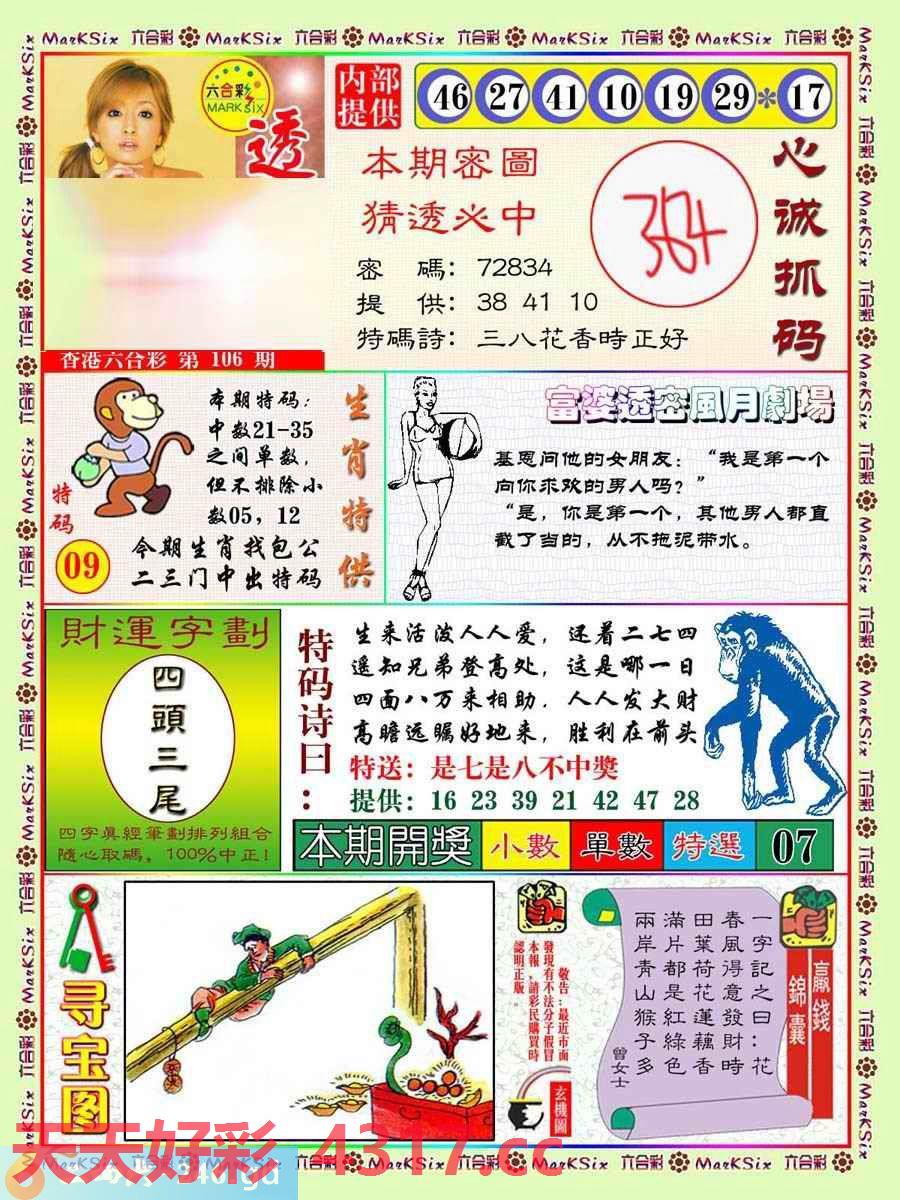 MarKSix 六合彩 MarKSix 六合彩 MarKSix 六合彩 MarKSix 六合彩 MarKSix 六合彩
六合彩
MARK six
透
内部
提供
46 27 41 10 19 29 * 17
本期密圖
猜透必中
364
心诚抓码
密 碼: 72834
提 供: 38 41 10
特碼詩: 三八花香時正好
香港六合彩 第 106 期
特码
09
本期特码:
中数21-35
之间单数,
但不排除小
数05, 12
今期生肖找包公
二三门中出特码
生肖特供
富婆透密風月劇場
基恩问他的女朋友: “我是第一个
向你求欢的男人吗?”
“是, 你是第一个, 其他男人都直
截了当的, 从不拖泥带水。
財運字劃
四頭三尾
四字眞經筆劃排列組合
隨心取碼, 100%中正!
特码诗曰:
生来活泼人人爱, 还着二七四
遥知兄弟登高处, 这是哪一日
四面八万来相助. 人人发大财
高瞻远瞩好地来, 胜利在前头
特送: 是七是八不中獎
提供: 16 23 39 21 42 47 28
本期開獎 小數 單數 特選 07
寻宝图
敬告:最近市面
發現有不法分子假冒
本報,請彩民購買時
認明正版。
玄機圖
一字記之曰: 花
春風得意發財時
田葉荷花蓮藕香
滿片都是紅綠色
兩岸青山猴子多
曾女士
贏錢
錦囊
天天好彩 4317.cc
MarKSix 六合彩 MarKSix 六合彩 MarKSix 六合彩